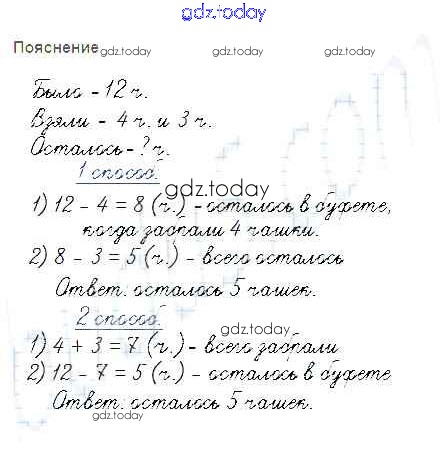 gdz.today
Пояснение gdz.today gdz.today gdz.today
Было - 12 ч.
Взяли - 4 ч. и 3 ч.
Осталось - ? ч.
1 способ.
gdz.today
1) 12 - 4 = 8 (ч.) - осталось в буфете,
когда забрали 4 чашки.
2) 8 - 3 = 5 (ч.) - всего осталось
Ответ: осталось 5 чашек.
2 способ.
gdz.today
1) 4 + 3 = 7 (ч.) - всего забрали
2) 12 - 7 = 5 (ч.) - осталось в буфете
Ответ: осталось 5 чашек.
gdz.today gdz.today gdz.today